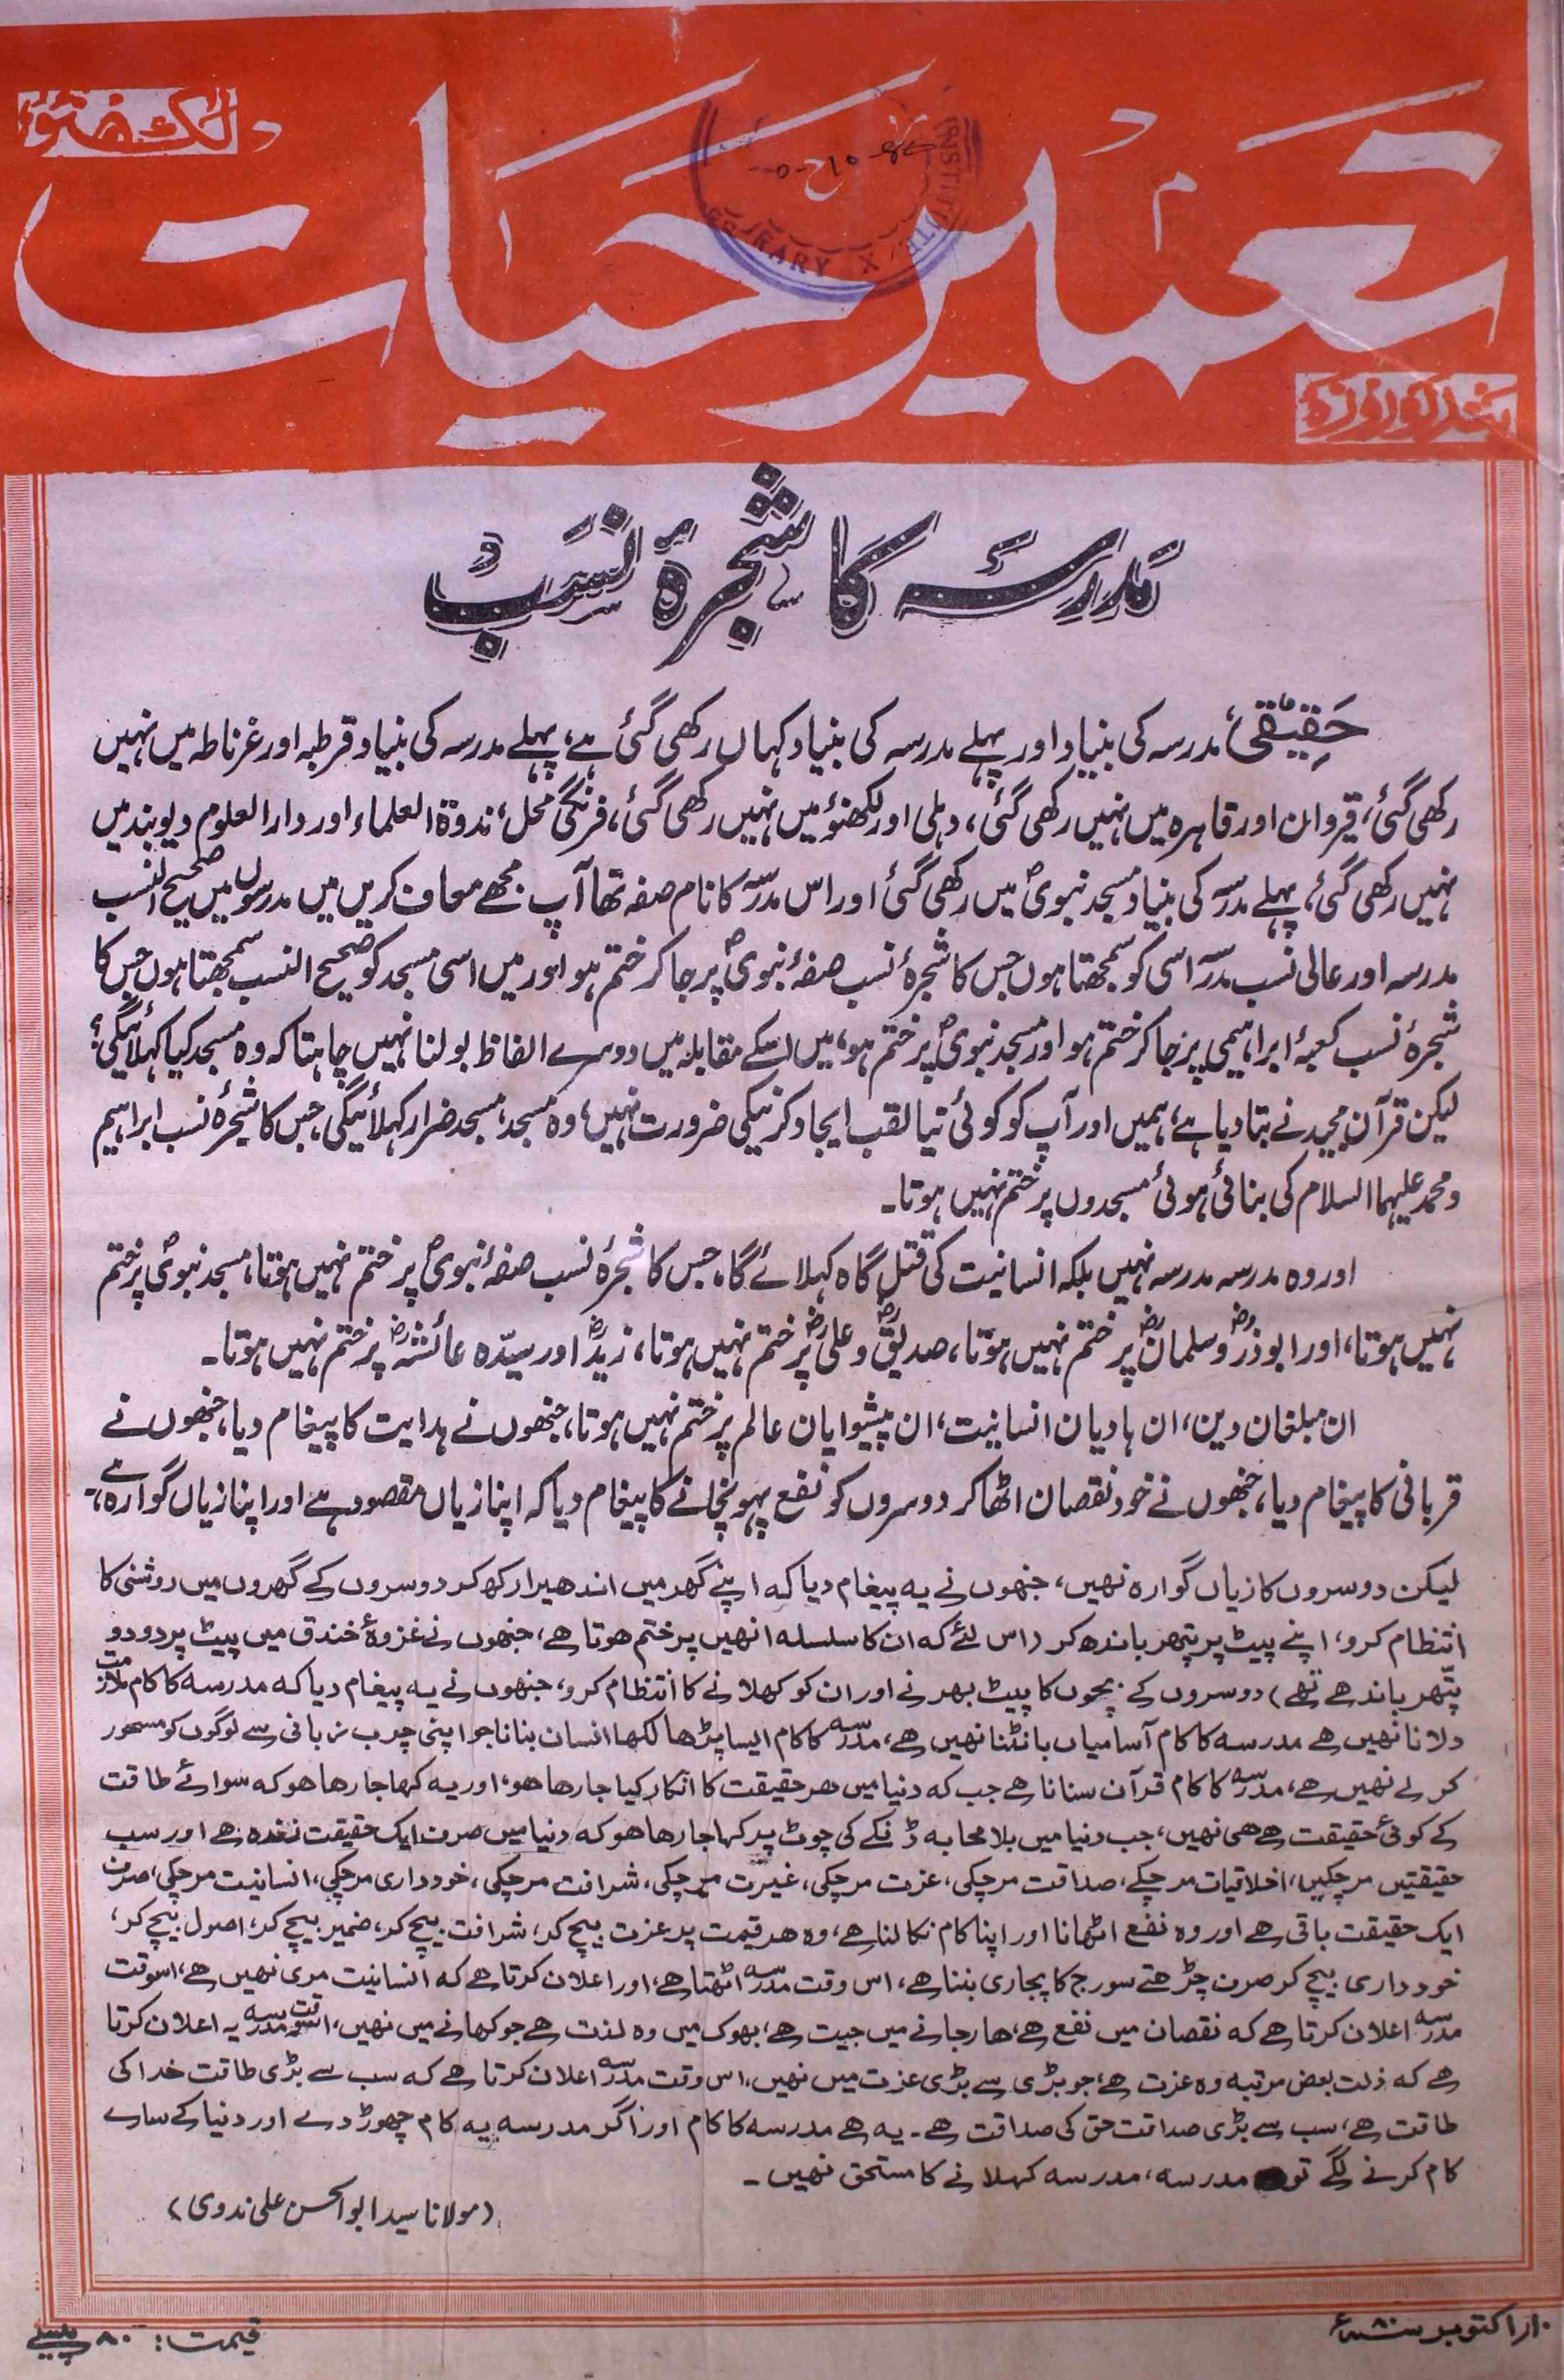 لکھنؤ
تعمیر حیات
پندرہ روزہ
INSTITUTE LIBRARY
مدرسہ کا شجرۂ نسب
حقیقی، مدرسہ کی بنیاد اور پہلے مدرسہ کی بنیاد کہاں رکھی گئی ہے، پہلے مدرسہ کی بنیاد قرطبہ اور غرناطہ میں نہیں
رکھی گئی، قیروان اور قاہرہ میں نہیں رکھی گئی، دہلی اور لکھنؤ میں نہیں رکھی گئی، فرنگی محل، ندوۃ العلماء اور دار العلوم دیوبند میں
نہیں رکھی گئی، پہلے مدرسہ کی بنیاد مسجد نبویؐ میں رکھی گئی اور اس مدرسہ کا نام صفہ تھا آپ مجھے معاف کریں میں مدرسوں میں صحیح النسب
مدرسہ اور عالی نسب مدرسہ اسی کو سمجھتا ہوں جس کا شجرۂ نسب صفۂ نبویؐ پر جا کر ختم ہو اور میں اسی مسجد کو صحیح النسب سمجھتا ہوں جس کا
شجرۂ نسب کعبۂ ابراہیمی پر جا کر ختم ہو اور مسجد نبویؐ پر ختم ہو، میں اسکے مقابلہ میں دوسرے الفاظ بولنا نہیں چاہتا کہ وہ مسجد کیا کہلائیگی؟
لیکن قرآن مجید نے بتا دیا ہے، ہمیں اور آپ کو کوئی نیا لقب ایجاد کرنیکی ضرورت نہیں، وہ مسجد، مسجد ضرار کہلائیگی، جس کا شجرۂ نسب ابراہیم
و محمد علیہما السلام کی بنائی ہوئی مسجدوں پر ختم نہیں ہوتا۔
اور وہ مدرسہ مدرسہ نہیں بلکہ انسانیت کی قتل گاہ کہلائے گا، جس کا شجرۂ نسب صفۂ نبویؐ پر ختم نہیں ہوتا، مسجد نبویؐ پر ختم
نہیں ہوتا، اور ابوذرؓ و سلمانؓ پر ختم نہیں ہوتا، صدیقؓ و علیؓ پر ختم نہیں ہوتا، زیدؓ اور سیّدہ عائشہؓ پر ختم نہیں ہوتا۔
ان مبلغان دین، ان ہادیان انسانیت، ان پیشوایان عالم پر ختم نہیں ہوتا، جنھوں نے ہدایت کا پیغام دیا، جنھوں نے
قربانی کا پیغام دیا، جنھوں نے خود نقصان اٹھا کر دوسروں کو نفع پہونچانے کا پیغام دیا کہ اپنا زیاں مقصود ہے اور اپنا زیاں گوارہ ہے،
لیکن دوسروں کا زیاں گوارہ نہیں، جنھوں نے یہ پیغام دیا کہ اپنے گھر میں اندھیرا رکھ کر دوسروں کے گھروں میں روشنی کا
انتظام کرو، اپنے پیٹ پر پتھر باندھ کر (اس لئے کہ ان کا سلسلہ انھیں پر ختم ہوتا ہے، جنھوں نے غزوۂ خندق میں پیٹ پر دو دو
پتّھر باندھے تھے) دوسروں کے بچوں کا پیٹ بھرنے اور ان کو کھلانے کا انتظام کرو، جنھوں نے یہ پیغام دیا کہ مدرسہ کا کام ملازمت
دلانا نہیں ہے مدرسہ کا کام آسامیاں بانٹنا نہیں ہے، مدرسہ کا کام ایسا پڑھا لکھا انسان بنانا جو اپنی چرب زبانی سے لوگوں کو مسحور
کر لے نہیں ہے، مدرسہ کا کام قرآن سنانا ہے جب کہ دنیا میں ہر حقیقت کا انکار کیا جا رہا ہو، اور یہ کہا جا رہا ہو کہ سوائے طاقت
کے کوئی حقیقت ہے ہی نہیں، جب دنیا میں بلا محابہ ڈنکے کی چوٹ پر کہا جا رہا ہو کہ دنیا میں صرف ایک حقیقت زندہ ہے اور سب
حقیقتیں مر چکیں، اخلاقیات مر چکے، صداقت مر چکی، عزت مر چکی، غیرت مر چکی، شرافت مر چکی، خود داری مر چکی، انسانیت مر چکی، صرف
ایک حقیقت باقی ہے اور وہ نفع اٹھانا اور اپنا کام نکالنا ہے، وہ ہر قیمت پر عزت بیچ کر، شرافت بیچ کر، ضمیر بیچ کر، اصول بیچ کر،
خود داری بیچ کر صرف چڑھتے سورج کا پجاری بننا ہے، اس وقت مدرسہ اٹھتا ہے، اور اعلان کرتا ہے کہ انسانیت مری نہیں ہے، اسوقت
مدرسہ اعلان کرتا ہے کہ نقصان میں نفع ہے، ہار جانے میں جیت ہے، بھوک میں وہ لذت ہے جو کھانے میں نہیں، اسوقت مدرسہ یہ اعلان کرتا
ہے کہ ذلت بعض مرتبہ وہ عزت ہے، جو بڑی سے بڑی عزت میں نہیں، اس وقت مدرسہ اعلان کرتا ہے کہ سب سے بڑی طاقت خدا کی
طاقت ہے، سب سے بڑی صداقت حق کی صداقت ہے۔ یہ ہے مدرسہ کا کام اور اگر مدرسہ یہ کام چھوڑ دے اور دنیا کے سارے
کام کرنے لگے تو مدرسہ، مدرسہ کہلانے کا مستحق نہیں۔
(مولانا سید ابو الحسن علی ندوی)
۱۰ر اکتوبر سنہ ۸۰ء
قیمت: ۸۰ پیسے